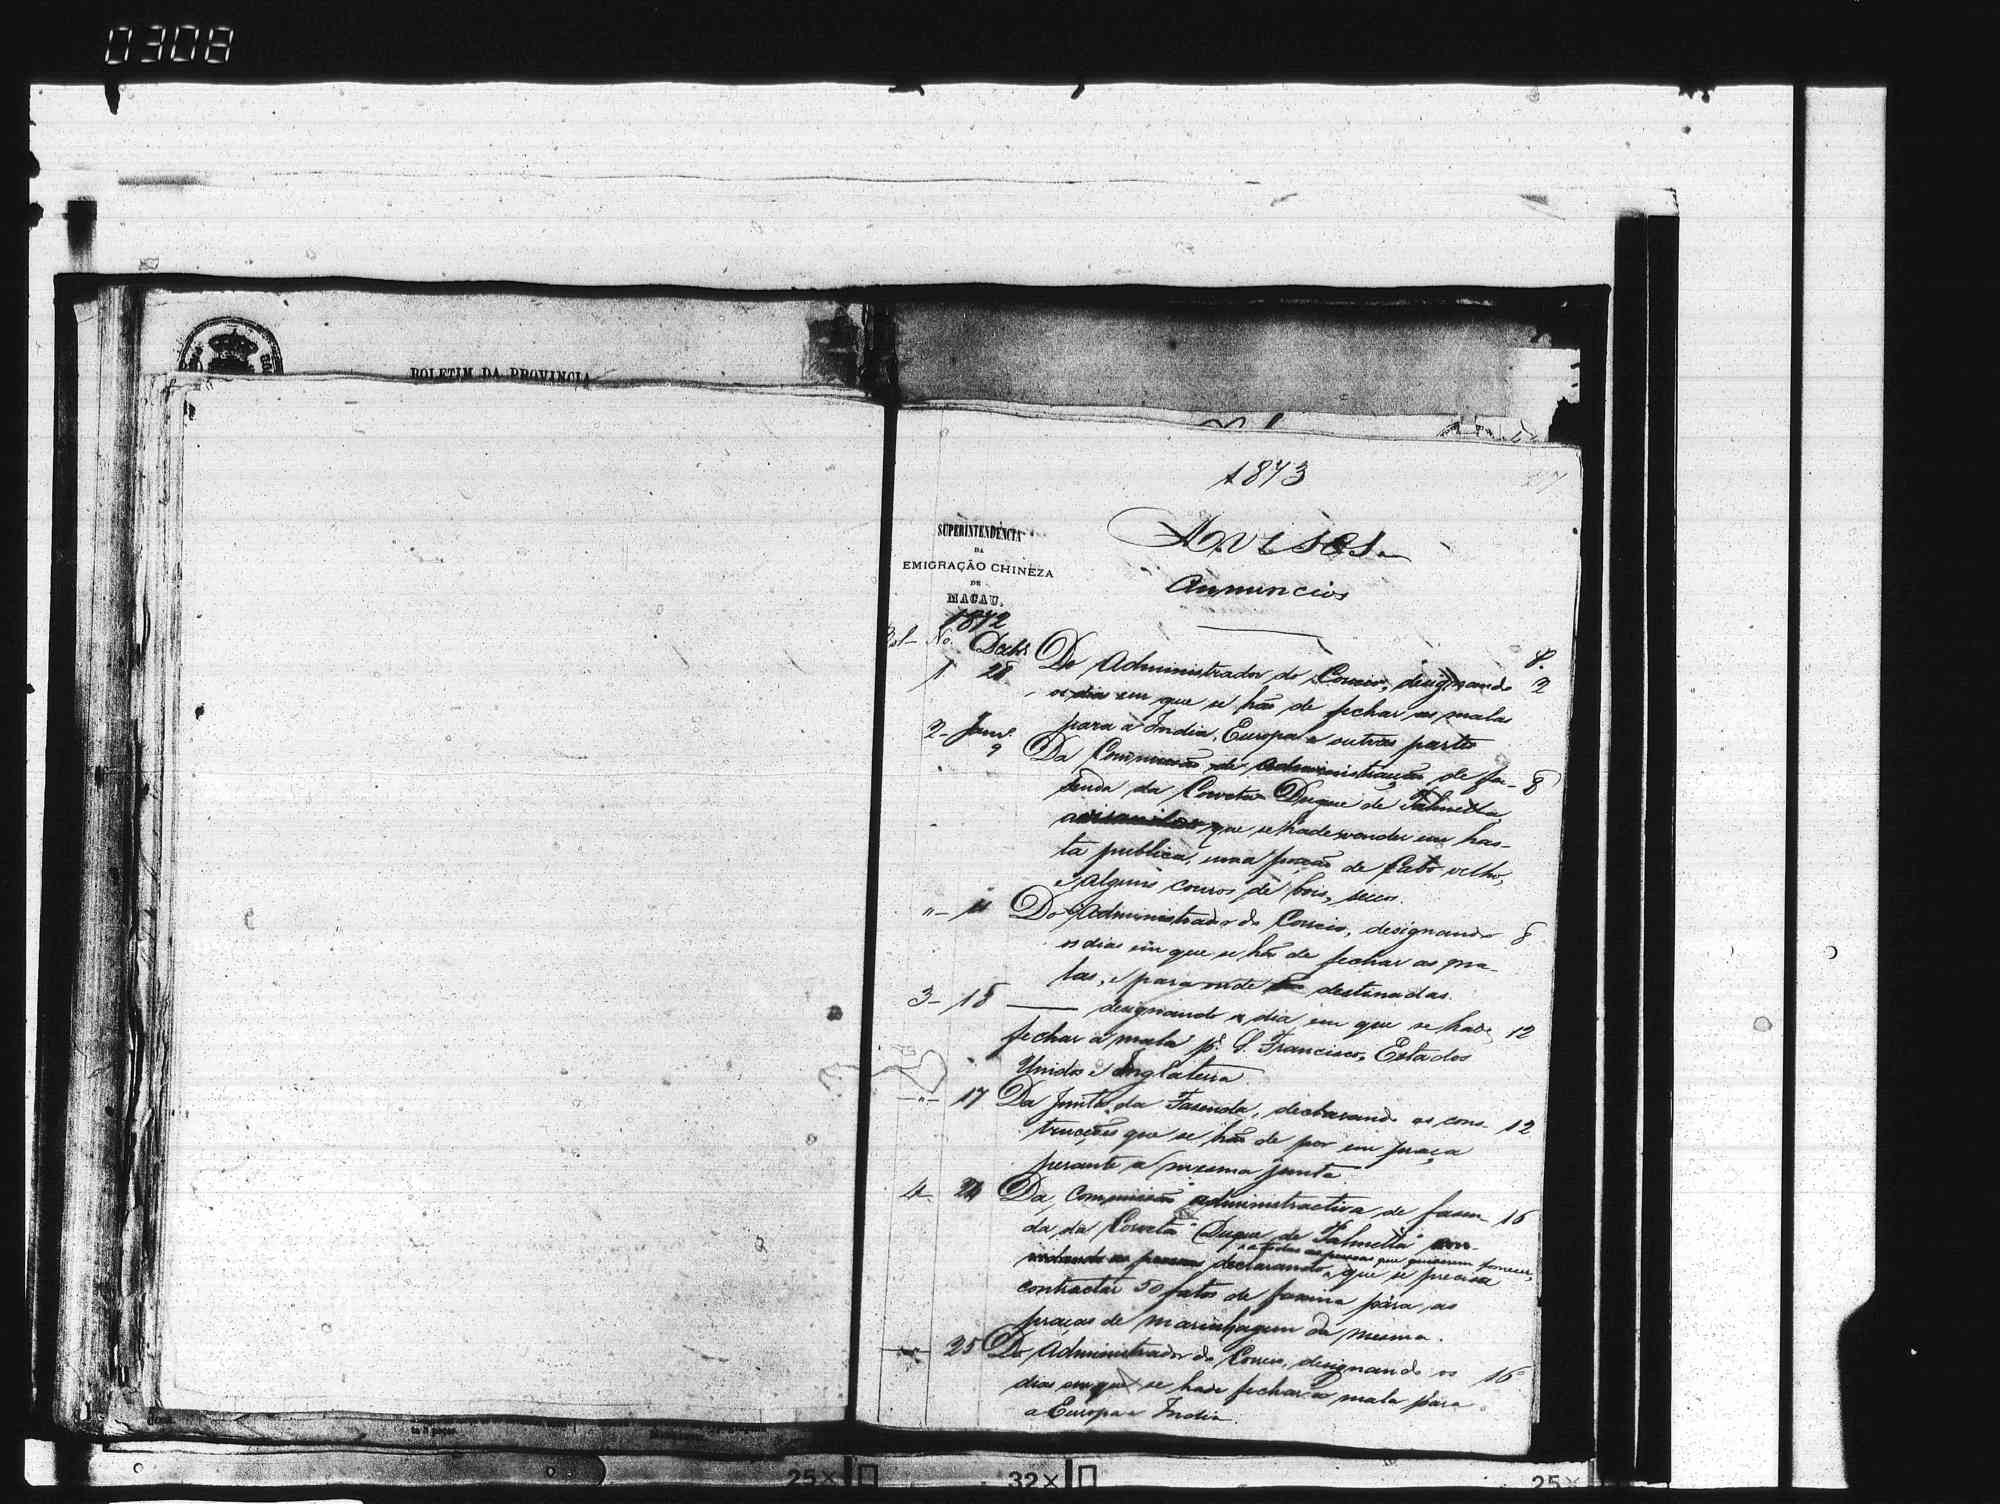 0308
BOLETIM DA PROVINCIA
1873
Avisos
Annuncios
SUPERINTENDENCIA
DA
EMIGRAÇÃO CHINEZA
DE
MACAU.
1872
Bol– No. Dezbr P.
1 28 Do Administrador do Correio, designando 2
os dia em que se hão de fechar as malas
para a India, Europa e outras partes
2– Janr. 9 Da Commissão de Administração de fa– 8
senda da Corveta Duque de Palmella
que se hade vender em has–
ta publica, uma porção de Cabo velho,
e alguns couros de bois, seccos.
"– 11 Do Administrador do Correio, designando 8
os dias em que se hão de fechar as ma–
las, e para onde são destinadas.
3– 15 —— designando o dia em que se hade 12
fechar a mala pa. S. Francisco, Estados
Unidos e Inglaterra.
–"– 17 Da Junta da Fasenda, declarando as cons– 12
trucções que se hão de por em praça
perante a mesma junta
4– 24 Da Commissão administractiva de fasen– 16
da da Corveta "Duque de Palmella" con–
a todas as pessoas que quiserem fornecer,
vidando as pessoas declarando, que se precisa
contractar 50 fatos de faxina para as
praças de marinhagem da mesma.
25 Do Administrador do Correio, designando os 16
dias em que se hade fechar a mala para
a Europa e India.
25X 32X 25X